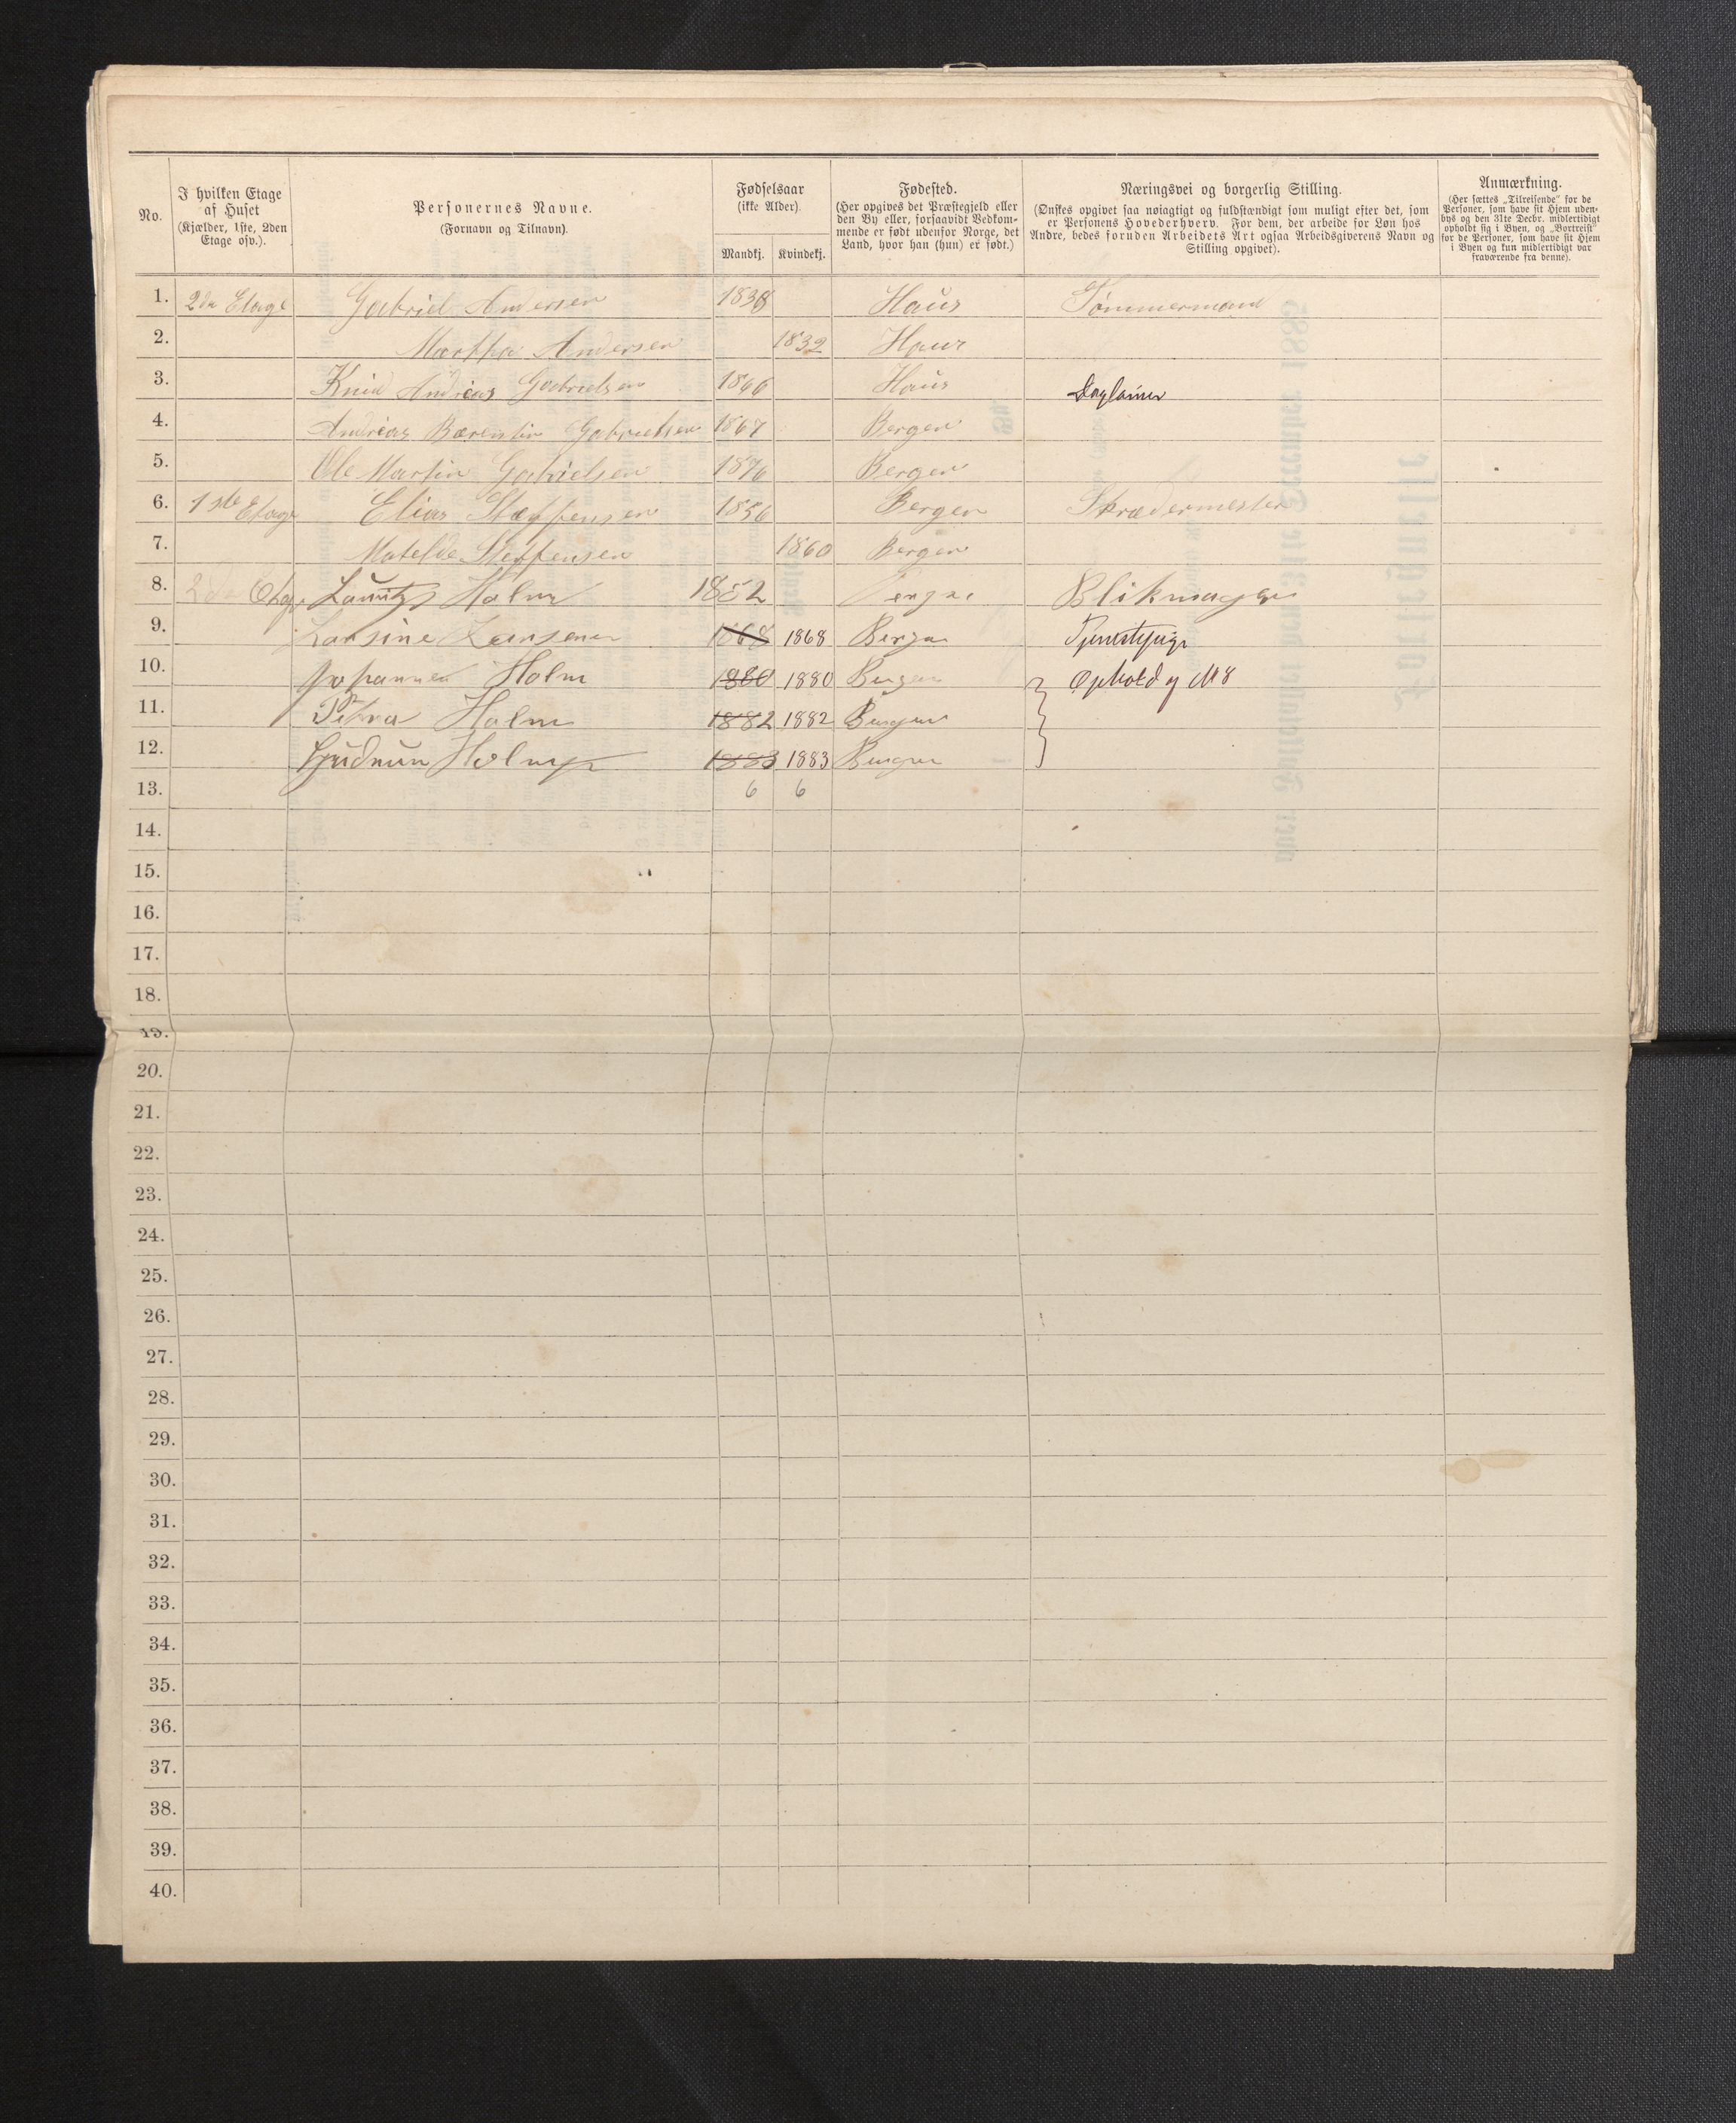 No.
I hvilken Etage af Huset (Kjælder, 1ste, 2den Etage osv.).
Personernes Navne. (Fornavn og Tilnavn).
Fødselsaar (ikke Alder). Mandkj. Kvindekj.
Fødested. (Her opgives det Præstegjeld eller den By eller, forsaavidt Vedkommende er født udenfor Norge, det Land, hvor han (hun) er født.)
Næringsvei og borgerlig Stilling. (Ønskes opgivet saa nøiagtigt og fuldstændigt som muligt efter det, som er Personens Hovederhverv. For dem, der arbeide for Løn hos Andre, bedes foruden Arbeidets Art ogsaa Arbeidsgiverens Navn og Stilling opgivet).
Anmærkning. (Her sættes „Tilreisende" for de Personer, som have sit Hjem udenbys og den 31te Decbr. midlertidigt opholdt sig i Byen, og „Bortreist" for de Personer, som have sit Hjem i Byen og kun midlertidigt var fraværende fra denne).
1. 2den Etage Gabriel Andersen 1838 Haus Tømmermand
2. Martha Andersen 1832 Haus
3. Knud Andreas Gabrielsen 1866 Haus Dagleier
4. Andreas Bærentin Gabrielsen 1867 Bergen
5. Ole Martin Gabrielsen 1876 Bergen
6. 1ste Etage Elias Steffensen 1856 Bergen Skrædermester
7. Matelde Steffensen 1860 Bergen
8. 2den Etage Lauritz Holm 1852 Bergen Blikmager
9. Larsine 1868 1868 Bergen Tjenestepige
10. Johanne Holm 1880 1880 Bergen Ophold af No 8
11. Petra Holm 1882 1882 Bergen
12. Gudrun Holm 1883 1883 Bergen
13. 6 6
14.
15.
16.
17.
18.
19.
20.
21.
22.
23.
24.
25.
26.
27.
28.
29.
30.
31.
32.
33.
34.
35.
36.
37.
38.
39.
40.